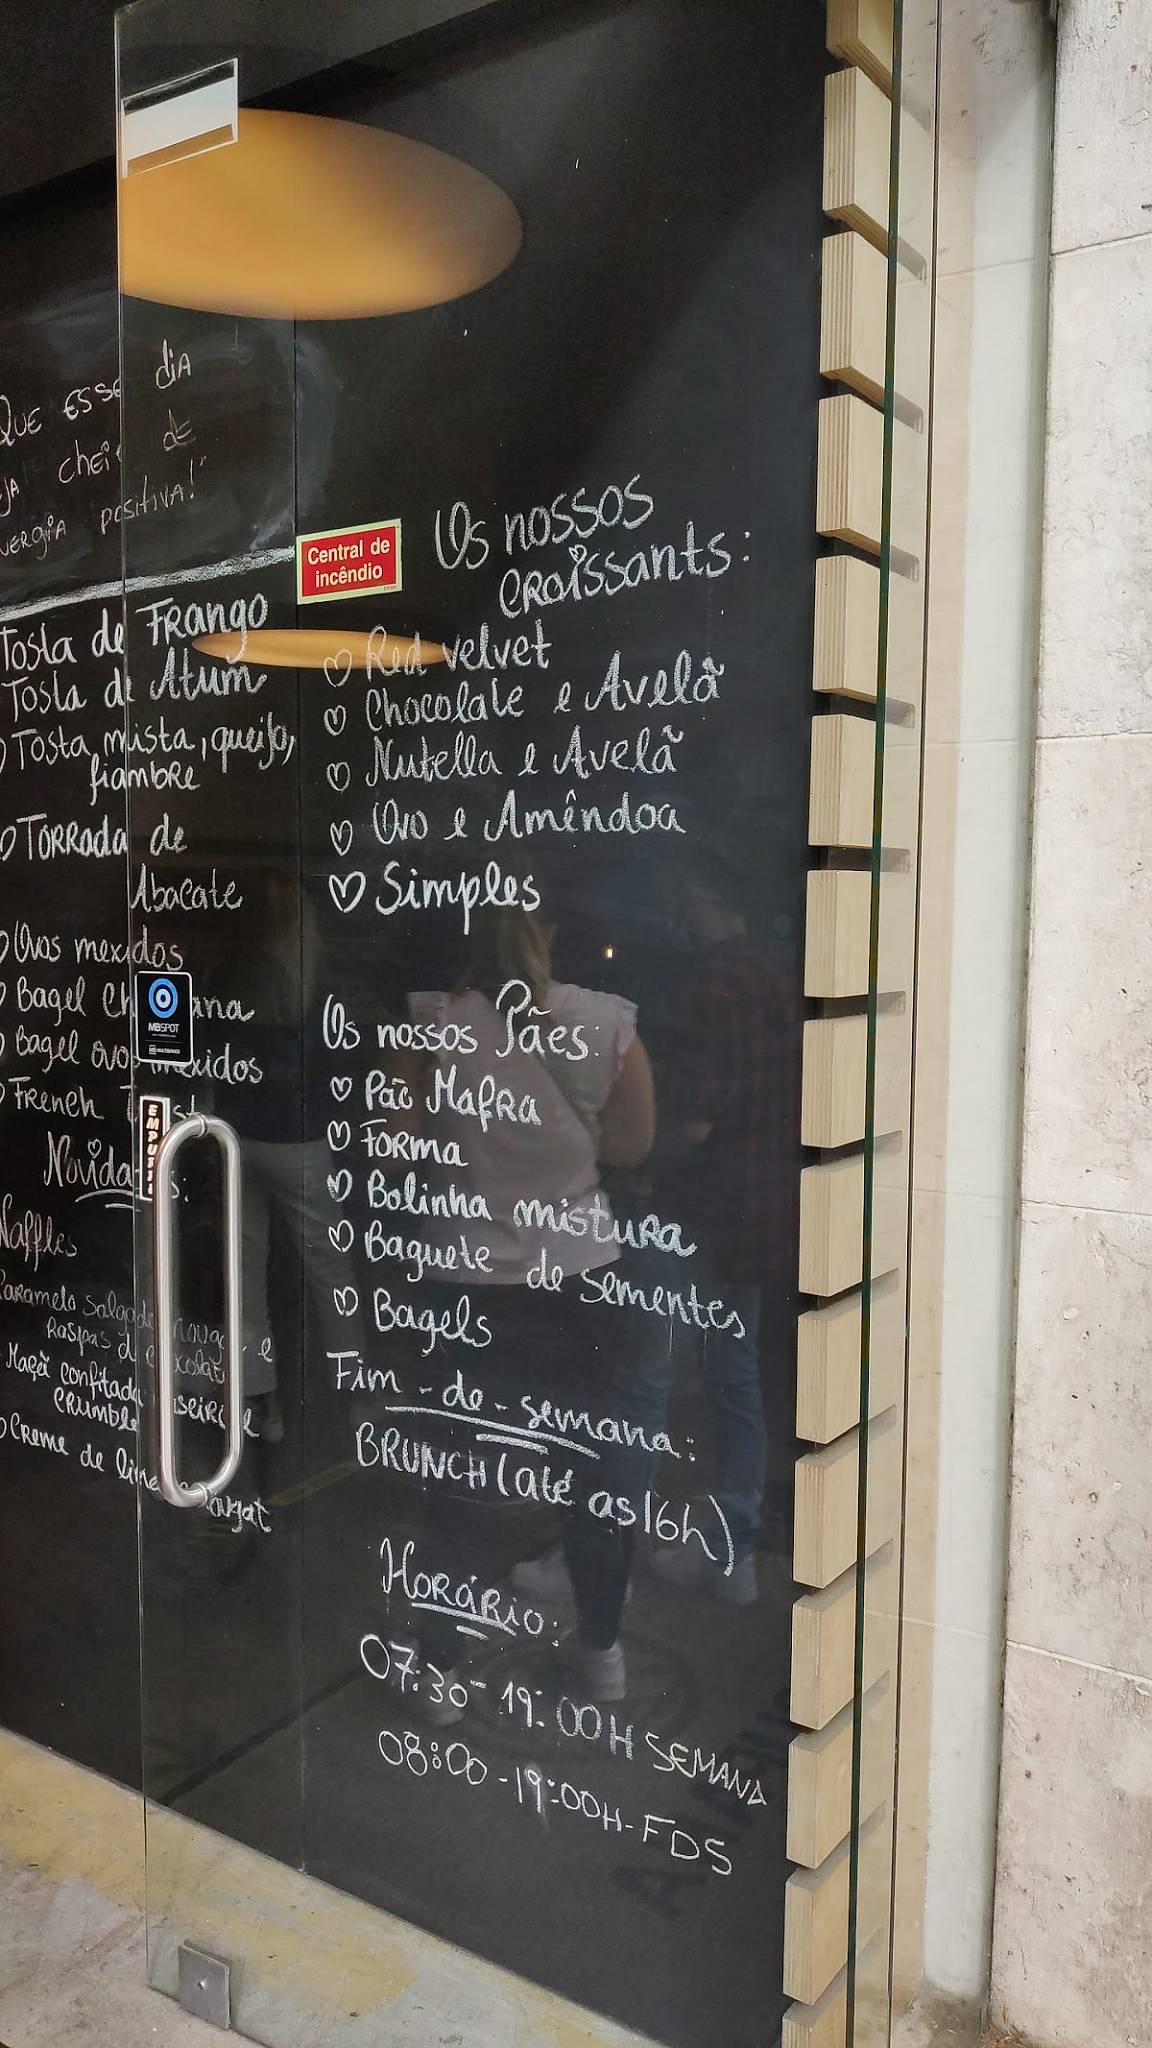 QUE ESSE DIA
cheio de
positiva!"
Tosta de Frango
Tosta de Atum
Tosta mista, queijo,
fiambre
Torrada de
Abacate
Ovos mexidos
Bagel
Bagel ovos mexidos
French
Novidades:
Waffles
Caramelo salgado e
Raspas
Maçã confitada
crumble
Creme de
Central de
incêndio
MBSPOT
EMPURRE
Os nossos
croissants:
Red velvet
Chocolate e Avelã
Nutella e Avelã
Ovo e Amêndoa
Simples
Os nossos Pães:
Pão Mafra
Forma
Bolinha mistura
Baguete de sementes
Bagels
Fim-de-semana:
BRUNCH (até as 16h)
Horário:
07:30-19:00H SEMANA
08:00-19:00H-FDS